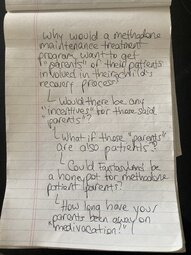 Why would a methadone
maintenance treatment
program want to get
"parents" of their patients
involved in their child's
recovery process?
Would there be any
"incentives" for those said
"parents"?
What if those "parents"
are also patients?
Could Fantasyland be
a honeypot for methadone
patient parents?
How long have your
parents been away on
"medivacation?"